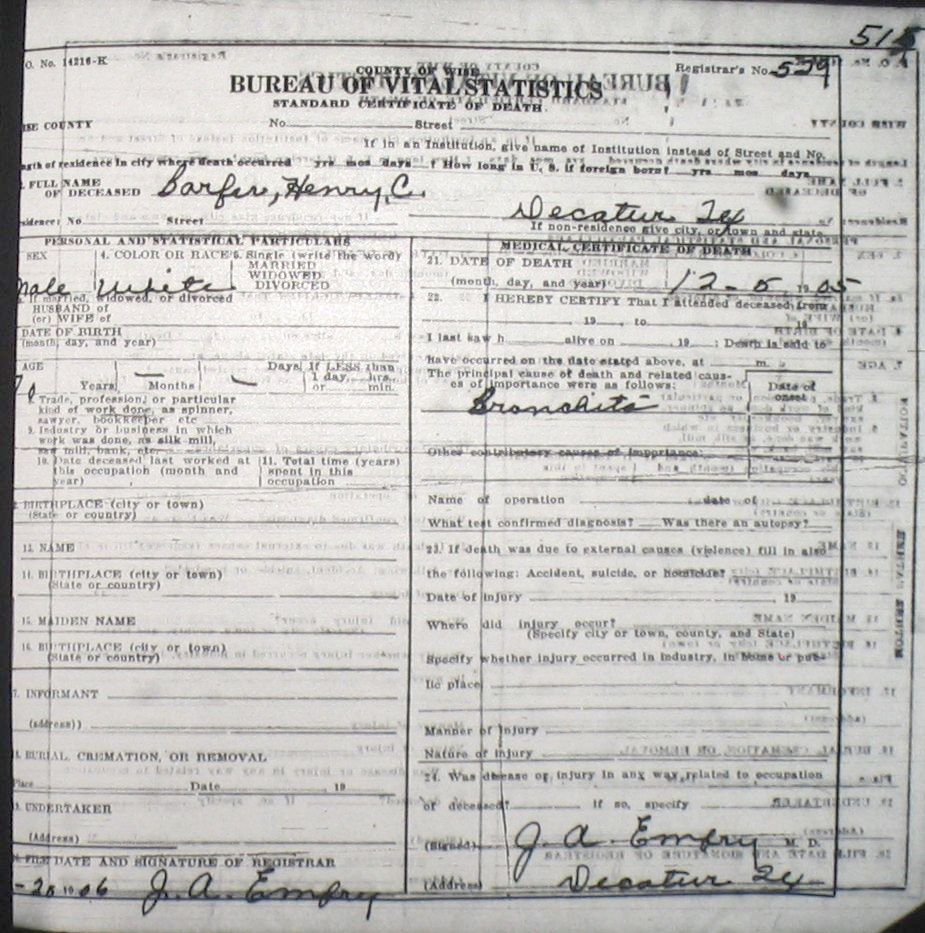 515
O. No. 14216-K
Registrar's No. 529
COUNTY OF WISE
BUREAU OF VITAL STATISTICS
STANDARD CERTIFICATE OF DEATH
ISE COUNTY No. Street
If in an Institution, give name of Institution instead of Street and No.
ngth of residence in city where death occurred yrs mos days How long in U. S. if foreign born? yrs mos days
FULL NAME
OF DECEASED Henry, C.
Decatur Tex
esidence: No Street
If non-residence give city, or town and state
PERSONAL AND STATISTICAL PARTICULARS
SEX 4. COLOR OR RACE 5. Single (write the word)
MARRIED
WIDOWED
DIVORCED
male White
If married, widowed, or divorced
HUSBAND of
(or) WIFE of
DATE OF BIRTH
(month, day, and year)
AGE Days If LESS than
1 day, hrs.
70 Years — Months — or min.
Trade, profession, or particular
kind of work done, as spinner,
sawyer, bookkeeper etc
9. Industry or business in which
work was done, as silk mill,
saw mill, bank, etc.
10. Date deceased last worked at
this occupation (month and
year)
11. Total time (years)
spent in this
occupation
BIRTHPLACE (city or town)
(State or country)
13. NAME
14. BIRTHPLACE (city or town)
(State or country)
15. MAIDEN NAME
16. BIRTHPLACE (city or town)
(State or country)
7. INFORMANT
(address))
BURIAL, CREMATION, OR REMOVAL
Place Date 19
UNDERTAKER
(Address)
FILE DATE AND SIGNATURE OF REGISTRAR
-20 1906 J. A. Empry
MEDICAL CERTIFICATE OF DEATH
21. DATE OF DEATH
(month, day, and year) 12-5, 1905
22. I HEREBY CERTIFY That I attended deceased from
19 , to 19
I last saw h alive on , 19 ; Death is said to
have occurred on the date stated above, at m.
The principal cause of death and related caus-
es of importance were as follows:
Date of
onset
Bronchitis
Other contributory causes of importance:
Name of operation date of
What test confirmed diagnosis? Was there an autopsy?
23. If death was due to external causes (violence) fill in also
the following: Accident, suicide, or homicide?
Date of injury 19
Where did injury occur?
(Specify city or town, county, and State)
Specify whether injury occurred in industry, in home or pub-
lic place
Manner of injury
Nature of injury
24. Was disease or injury in any way related to occupation
of deceased? If so, specify
(Signed) J. A. Empry M. D.
(Address) Decatur Tex